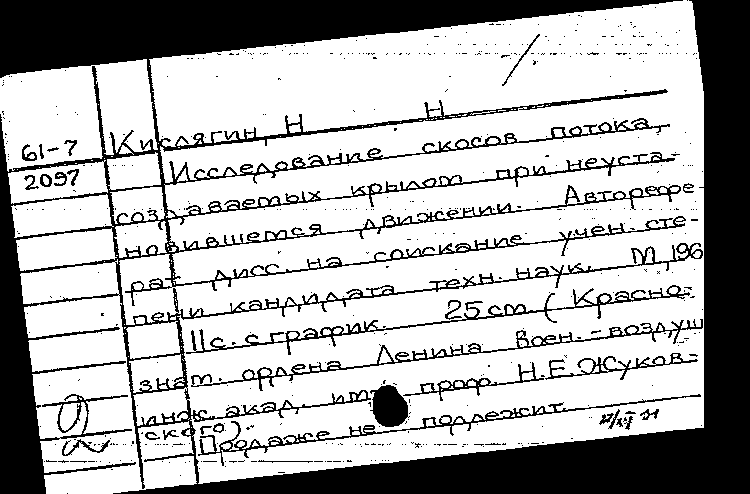 61-7 Кислягин, Н Н
2097 Исследование скосов потока,
создаваемых крылом при неуста-
новившемся движении. Авторефе-
рат дисс. на соискание учен. сте-
пени кандидата техн. наук. М, 196
11с. с график. 25 cm (Красно-
знам. ордена Ленина Воен.-воздуш
инж. акад. им проф. Н.Е. Жуков-
ского).
Продаже не подлежит.